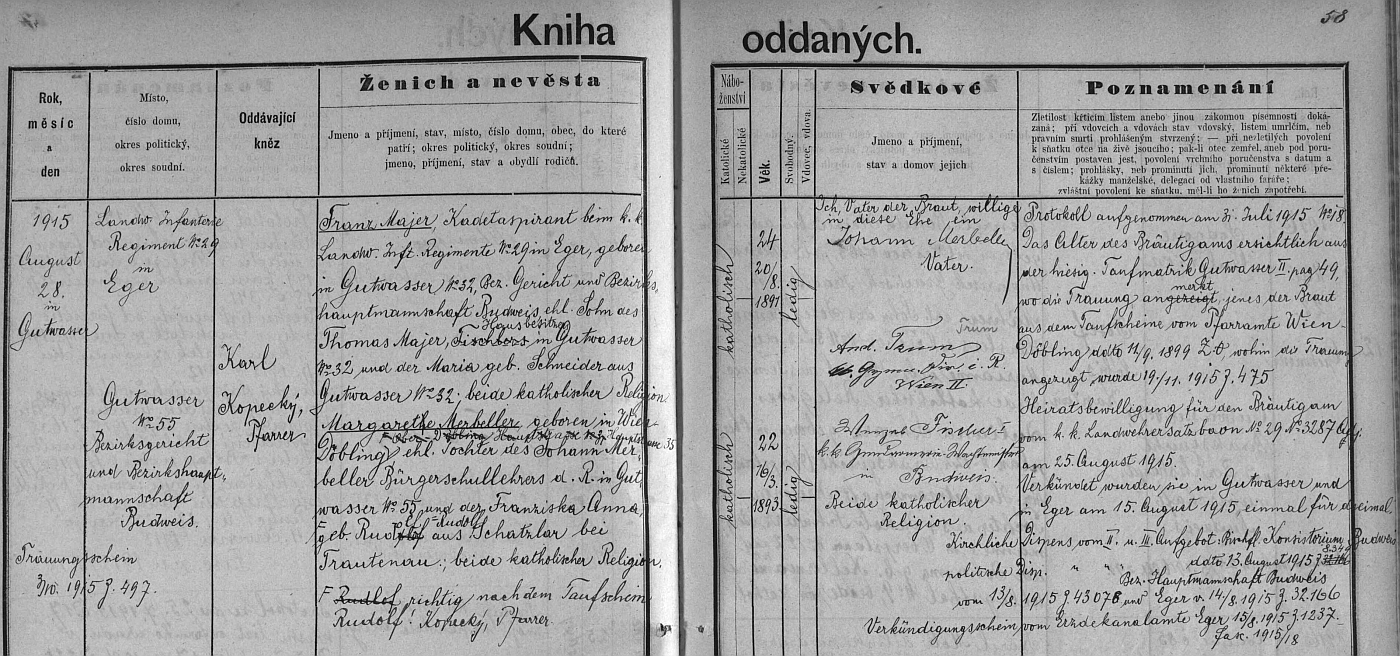 58
Kniha oddaných.
Rok, měsíc a den
Místo, číslo domu, okres politický, okres soudní.
Oddávající kněz
Ženich a nevěsta
Jméno a příjmení, stav, místo, číslo domu, obec, do které
patří; okres politický, okres soudní;
jméno, příjmení, stav a obydlí rodičů.
Náboženství
Katolické
Nekatolické
Věk.
Svobodný.
Vdovec, vdova.
Svědkové
Jméno a příjmení,
stav a domov jejich
Poznamenání
Zletilost křticím listem anebo jinou zákonnou písemností dokázaná;
při vdovcích a vdovách stav vdovský, listem úmrlčím, neb
pravním smrti prohlášením stvrzený; — při nezletilých povolení
k sňatku otce na živě jsoucího; pak-li otec zemřel, aneb pod poručenstvím
postaven jest, povolení vrchního poručenstva s datum a
s číslem; prohlášky, neb prominutí jich, prominutí některé překážky
manželské, delegací od vlastního faráře;
zvláštní povolení ke sňatku, měl-li ho ženich zapotřebí.
1915
August
28.
in
Gutwasser
Landw. Infanterie
Regiment No 29
in
Eger
Gutwasser
No 55
Bezirksgericht
und Bezirkshaupt-
mannschaft
Budweis.
Trauungsschein
1915 J. 497.
Karl
Kopecký,
Pfarrer
Franz Majer, Kadetaspirant beim k. k.
Landw. Inft. Regimente No 29 in Eger, geboren
in Gutwasser No 32, Bez. Gericht und Bezirks-
hauptmannschaft Budweis, ehl. Sohn des
Hausbesitzer
Thomas Majer, Fischbers in Gutwasser
No 32 und der Maria geb. Schneider aus
Gutwasser No 32; beide katholischer Religion
Margarethe Merbeller, geboren in Wien
Ober-Döbling Hauptstrasse 35
Döbling, ehl. Tochter des Johann Mer-
beller Bürgerschullehrers d. R. in Gut
wasser No 55, und der Franziska Anna,
F = Rudolf
geb. Rudlof aus Schatzlar bei
Trautenau.; beide katholischer Religion.
F Rudlof richtig nach dem Taufschein
Rudolf. Kopecký, Pfarrer.
katholisch
24
20/8.
1891
ledig
katholisch
22
16/3.
1893
ledig
Ich, Vater der Braut, willige
in diese Ehe ein
Johann Merbeller
Vater.
Trum
And. Trum
k.k. Gymn. Dir. i. R.
Wien II
Wenzel Fischer
k.k. Gendarmerie-Wachtmeister
in Budweis.
Beide katholischer
Religion.
Protokoll aufgenommen am 31. Juli 1915 No 18.
Das Alter des Bräutigams ersichtlich aus
der hiesig. Taufmatrik Gutwasser II. pag 49,
merkt
wo die Trauung angezeigt, jenes der Braut
aus dem Taufscheine vom Pfarramte Wien-
Döbling ddto 14/9. 1899 Z. t, wohin die Trauung
angezeigt, wurde 19./11. 1915 J. 475
Heiratsbewilligung für den Bräutigam
vom k. k. Landwehrersatzbaon No 29 No 3287
am 25. August 1915.
Verkündet wurden sie in Gutwasser und
in Eger am 15. August 1915, einmal für dreimal.
Kirchliche Dispens vom II. u. III. Aufgebot. Bischfl. Konsistorium Budweis
8.349
ddto 13. August 1915 J.
politische Disp. " " Bez. Hauptmannschaft Budweis
vom 13/8. 1915 J. 43076 und Eger v. 14/8. 1915 J. 32.166
Verkündigungsschein vom Erzdekanalamte Eger 15/8. 1915 J. 1237.
Fasc. 1915/18